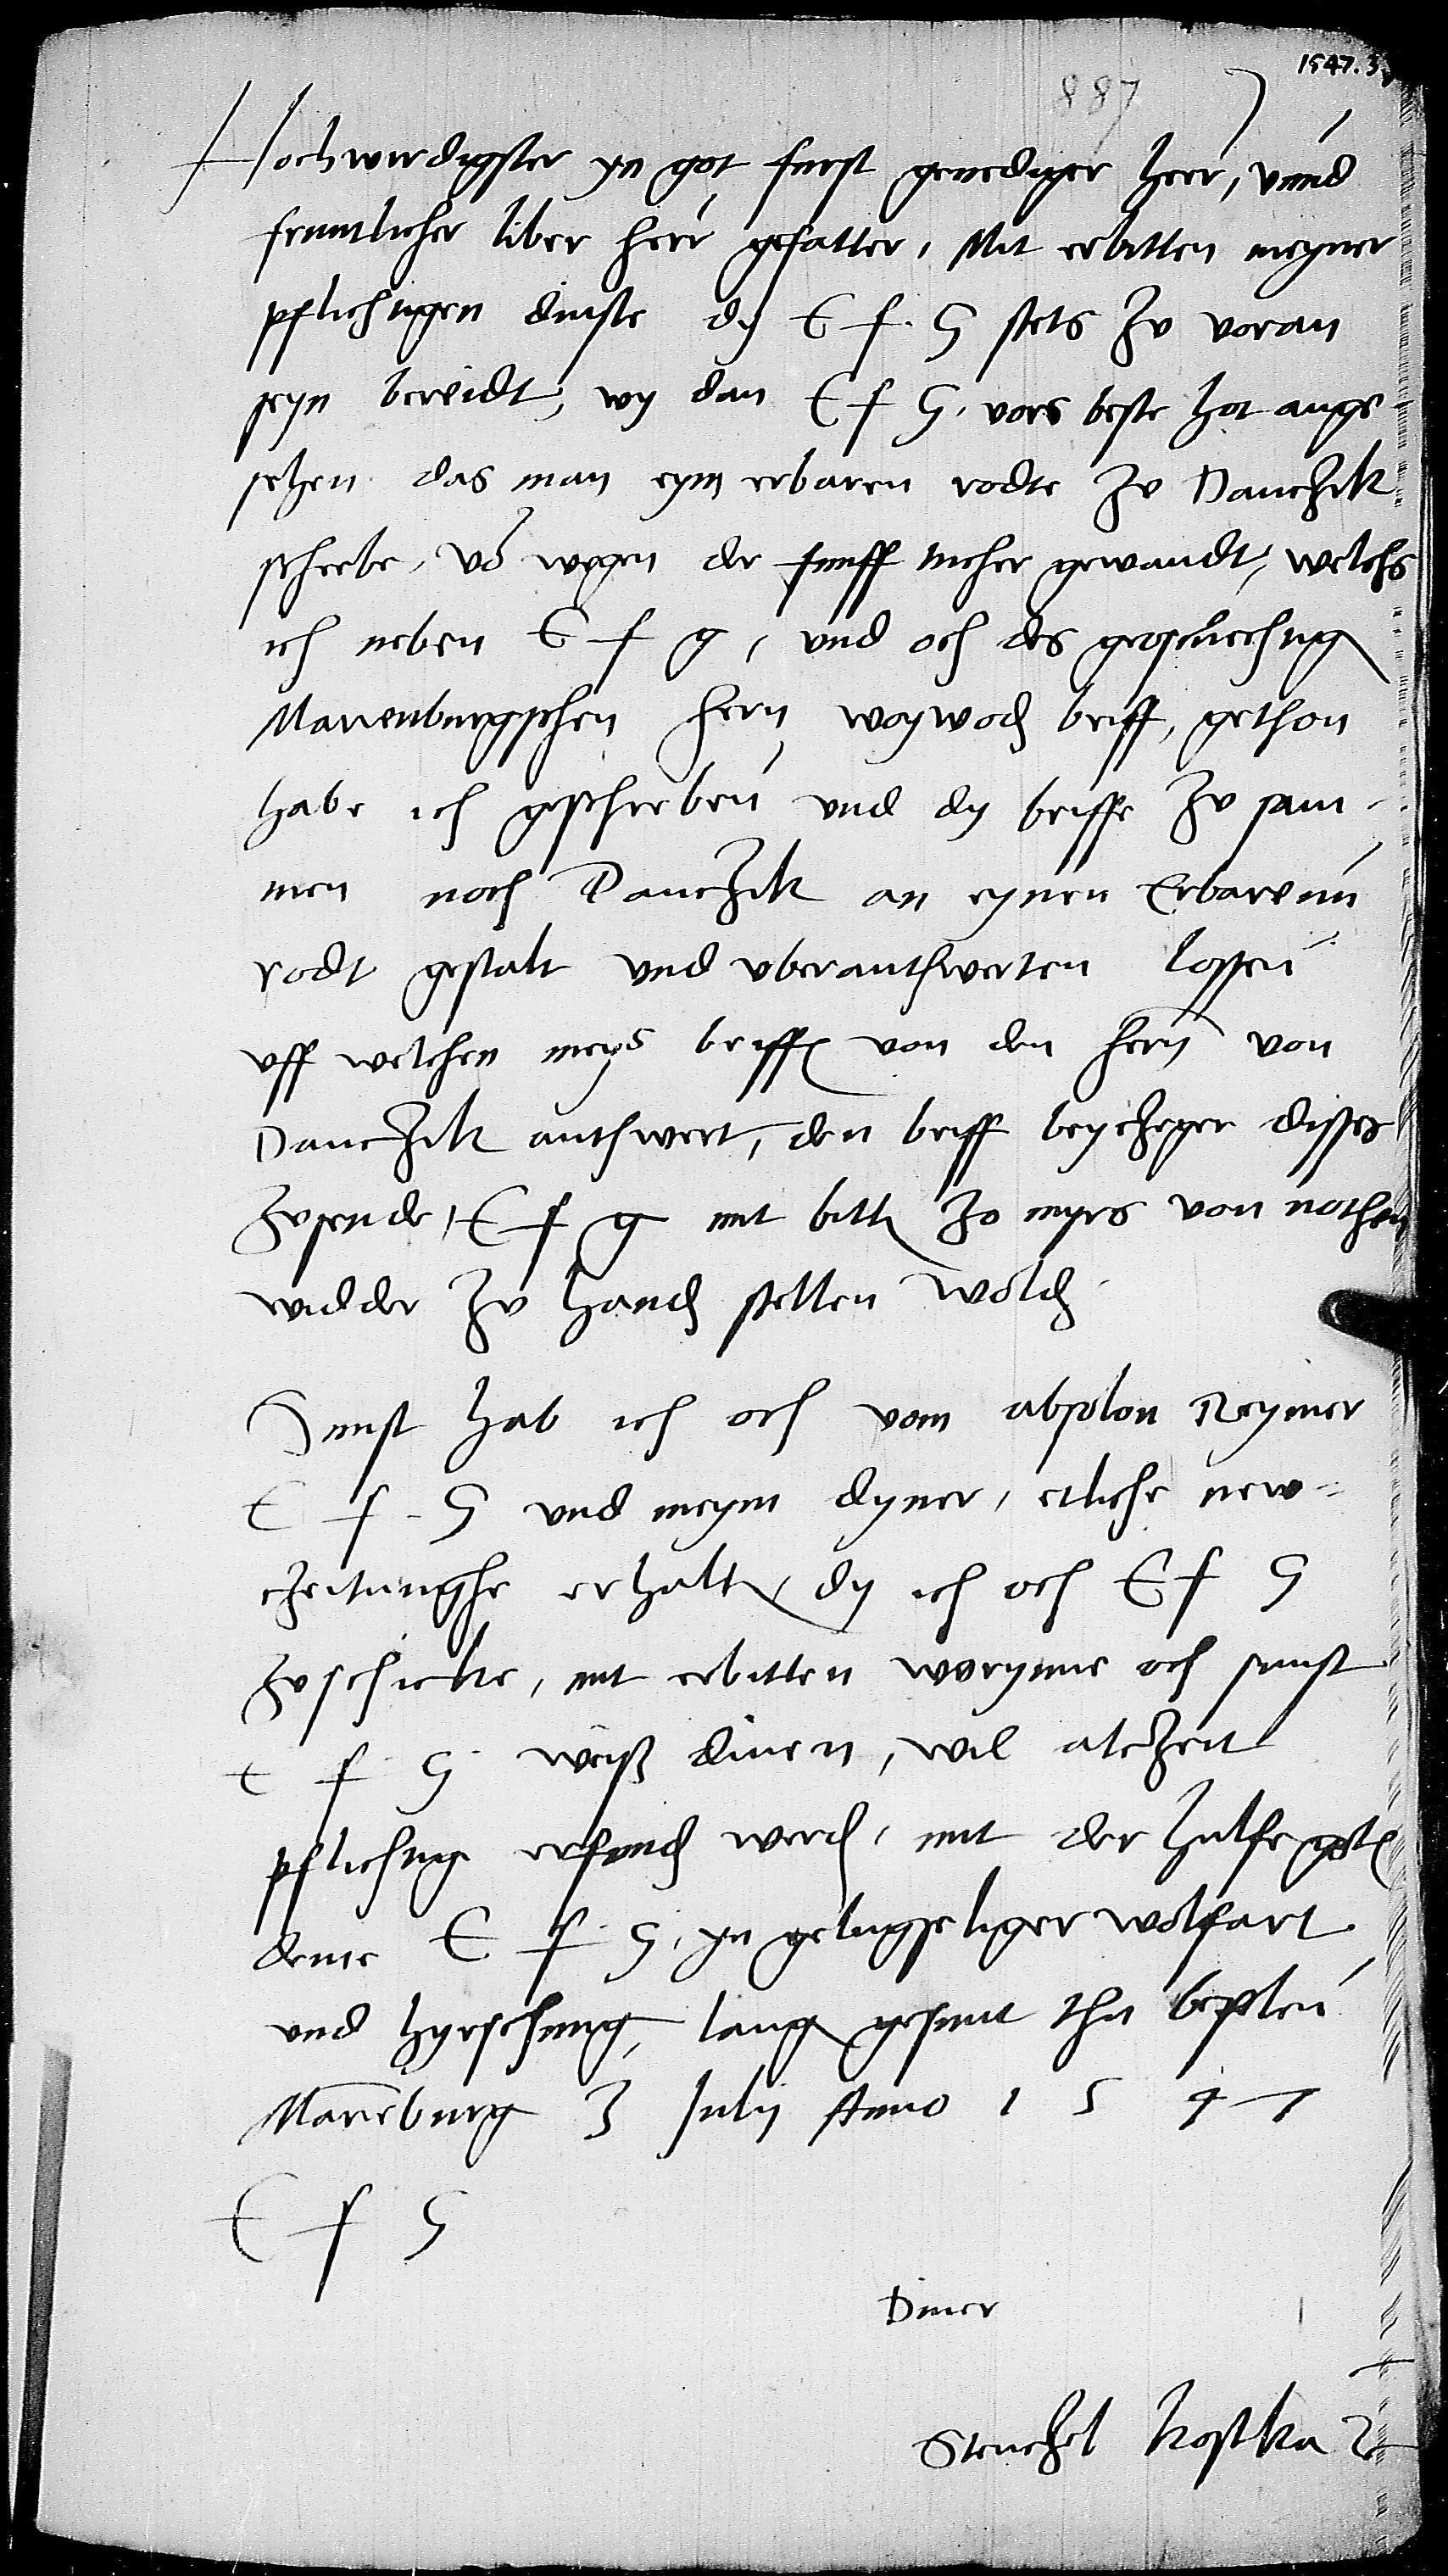 1547.3
887
Hochwirdigster yn got furst genediger herr, vnnd
fruntlicher liber herr gefatter, Mit erbitten meyner
pflichtigen dinste dy E f G stets zu voran
seyn bereidt, wy dan E f G. vors beste hot ange
sehen das man eym erbaren rodte zu Danczk
schrebe, vō wegen der funff tucher gewandt, welchs
ich neben E f g, vnd och des grosmechtig
Marienburgschen hern woywod briff, gethon
habe ich geschreben vnd dy briffe zu sam
men noch Danczk an eynen Erbarenn
rodt gestalt vnd vberanthwerten lossen
vff welchen meyn briff von den hern von
Danczk anthwert, den briff beyczeger disses
zusende, E f g mit bitt zo myrs von nothen
widder zu hand stellen wold
Sunst hab ich och vom absolon Reymer
E f G vnd meym dyner, etliche new=
czeitunghe erhalt, dy ich och E f G
zuschicke, mit erbitten worynne och sunst
E f G weiß dinen, wil alczeit
pflichtig erfund werd, mit der hulfe got
deme E f G, yn geluggseliger wolfart
vnd hyrschung, lang gesunt thu befelen
Marieburg 3 Julij Anno 1 5 4 7
E f G
Diner
Stenczel Kostka